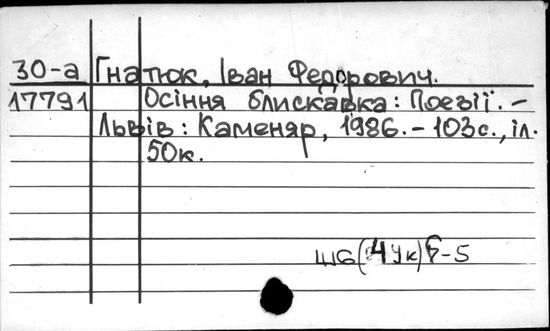 30-а Гнатюк, Іван Федорович.
17791 Осіння блискавка: Поезії. –
Львів: Каменяр, 1986. – 103с., іл.
50к.
Ш6(4Ук)6-5